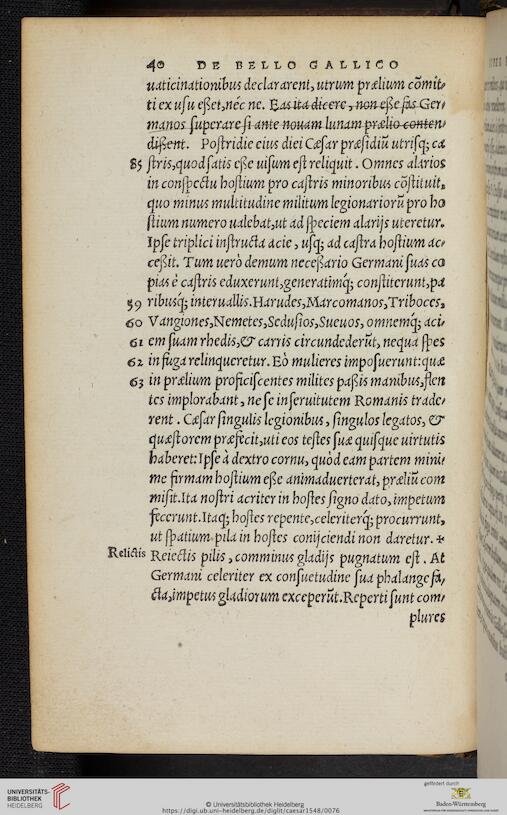 40 DE BELLO GALLICO
uaticinationibus declararent, utrum prælium cõmit⸗
ti ex usu eßet, néc ne. Eas ita dicere, non eße fás Ger⸗
manos superare si ante nouam lunam prælio conten⸗
dißent. Postridie eius diei Cæsar præsidiũ utrisq́; ca
85 stris, quod satis eße uisum est reliquit. Omnes alarios
in conspectu hostium pro castris minoribus cõstituit,
quo minus multitudine militum legionariorũ pro ho
stium numero ualebat, ut ad speciem alarijs uteretur.
Ipse triplici instructa acie, usq́; ad castra hostium ac⸗
ceßit. Tum uerò demum neceßario Germani suas co
pias è castris eduxerunt, generatimq́; constiterunt, pa
59 ribusq́; interuallis. Harudes, Marcomanos, Triboces,
60 Vangiones, Nemetes, Sedusios, Sueuos, omnemq́; aci⸗
61 em suam rhedis, & carris circundederũt, nequa spes
62 in fuga relinqueretur. Eò mulieres imposuerunt: quæ
63 in prælium proficiscentes milites paßis manibus, flen
tes implorabant, ne se in seruitutem Romanis trade⸗
rent. Cæsar singulis legionibus, singulos legatos, &
quæstorem præfecit, uti eos testes suæ quisque uirtutis
haberet: Ipse à dextro cornu, quòd eam partem mini⸗
me firmam hostium eße animaduerterat, præliũ com
misit. Ita nostri acriter in hostes signo dato, impetum
fecerunt. Itaq; hostes repente, celeriterq́; procurrunt,
ut spatium pila in hostes conijciendi non daretur. *
Relictis Reiectis pilis, comminus gladijs pugnatum est. At
Germani celeriter ex consuetudine sua phalange fa,
cta, impetus gladiorum exceperũt. Reperti sunt com⸗
plures
UNIVERSITÄTS-
BIBLIOTHEK
HEIDELBERG
© Universitätsbibliothek Heidelberg
https://digi.ub.uni-heidelberg.de/diglit/caesar1548/0076
gefördert durch
Baden-Württemberg